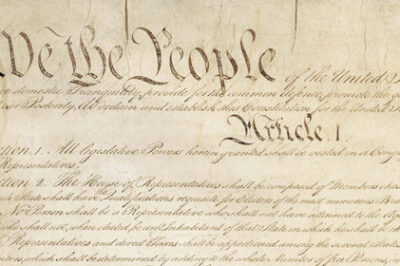 We the People of the United
domestic Tranquility, provide for the common defence, promote the
our Posterity, do ordain and establish this Constitution for the United
Article. I.
Section. 1. All legislative Powers herein granted shall be vested in a
Representatives.
Section. 2. The House of Representatives shall be composed of Members
State shall have Qualifications requisite for Electors of the most numerous
No Person shall be a Representative who shall not have attained to the
who shall not, when elected, be an Inhabitant of that State in which he shall
Representatives and direct Taxes shall be apportioned among the several
which shall be determined by adding to the whole Number of free Persons,